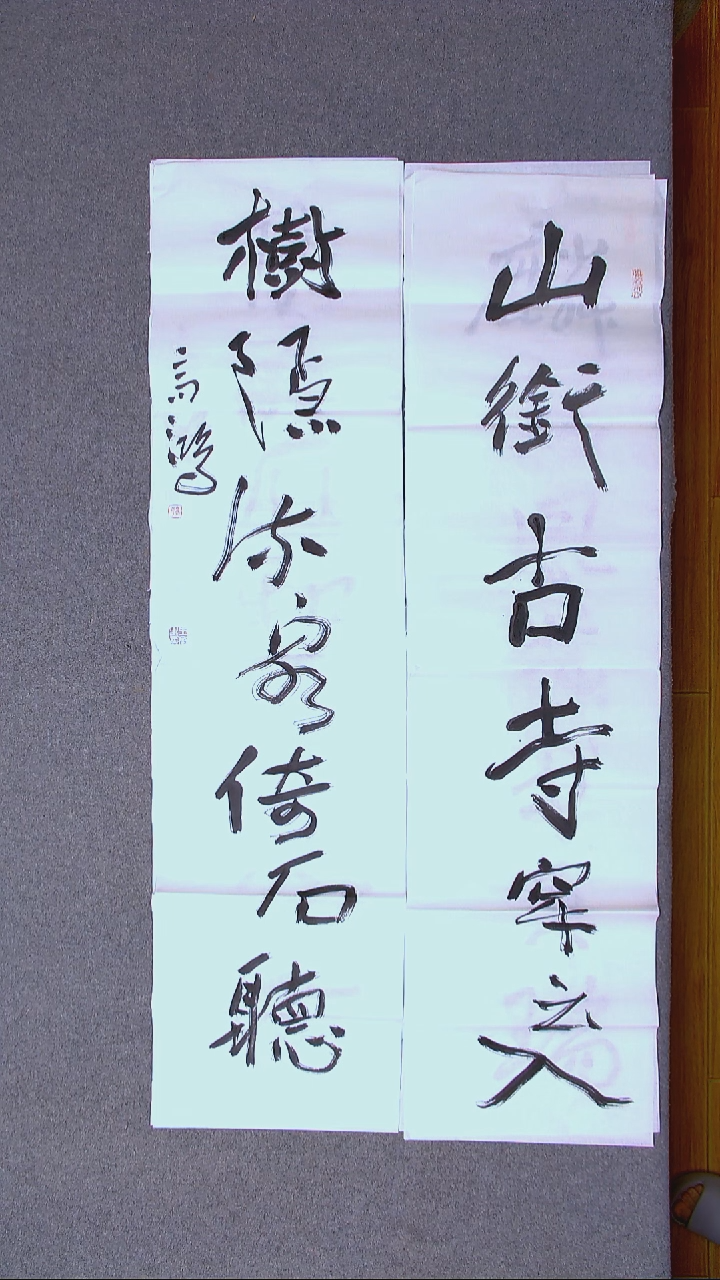 山銜古寺穿云入
樹隱流泉倚石聽
高鴻